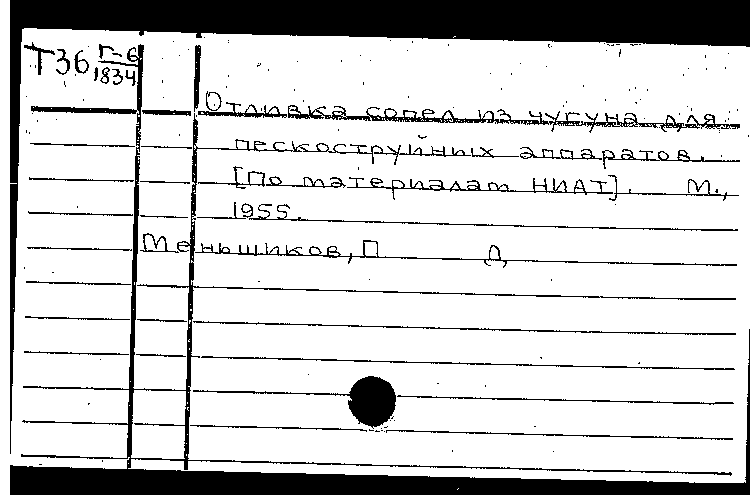 Т36 Г-6
1834
Отливка сопел из чугуна для
пескоструйных аппаратов.
[По материалам НИАТ]. М.,
1955.
Меньшиков, П Д